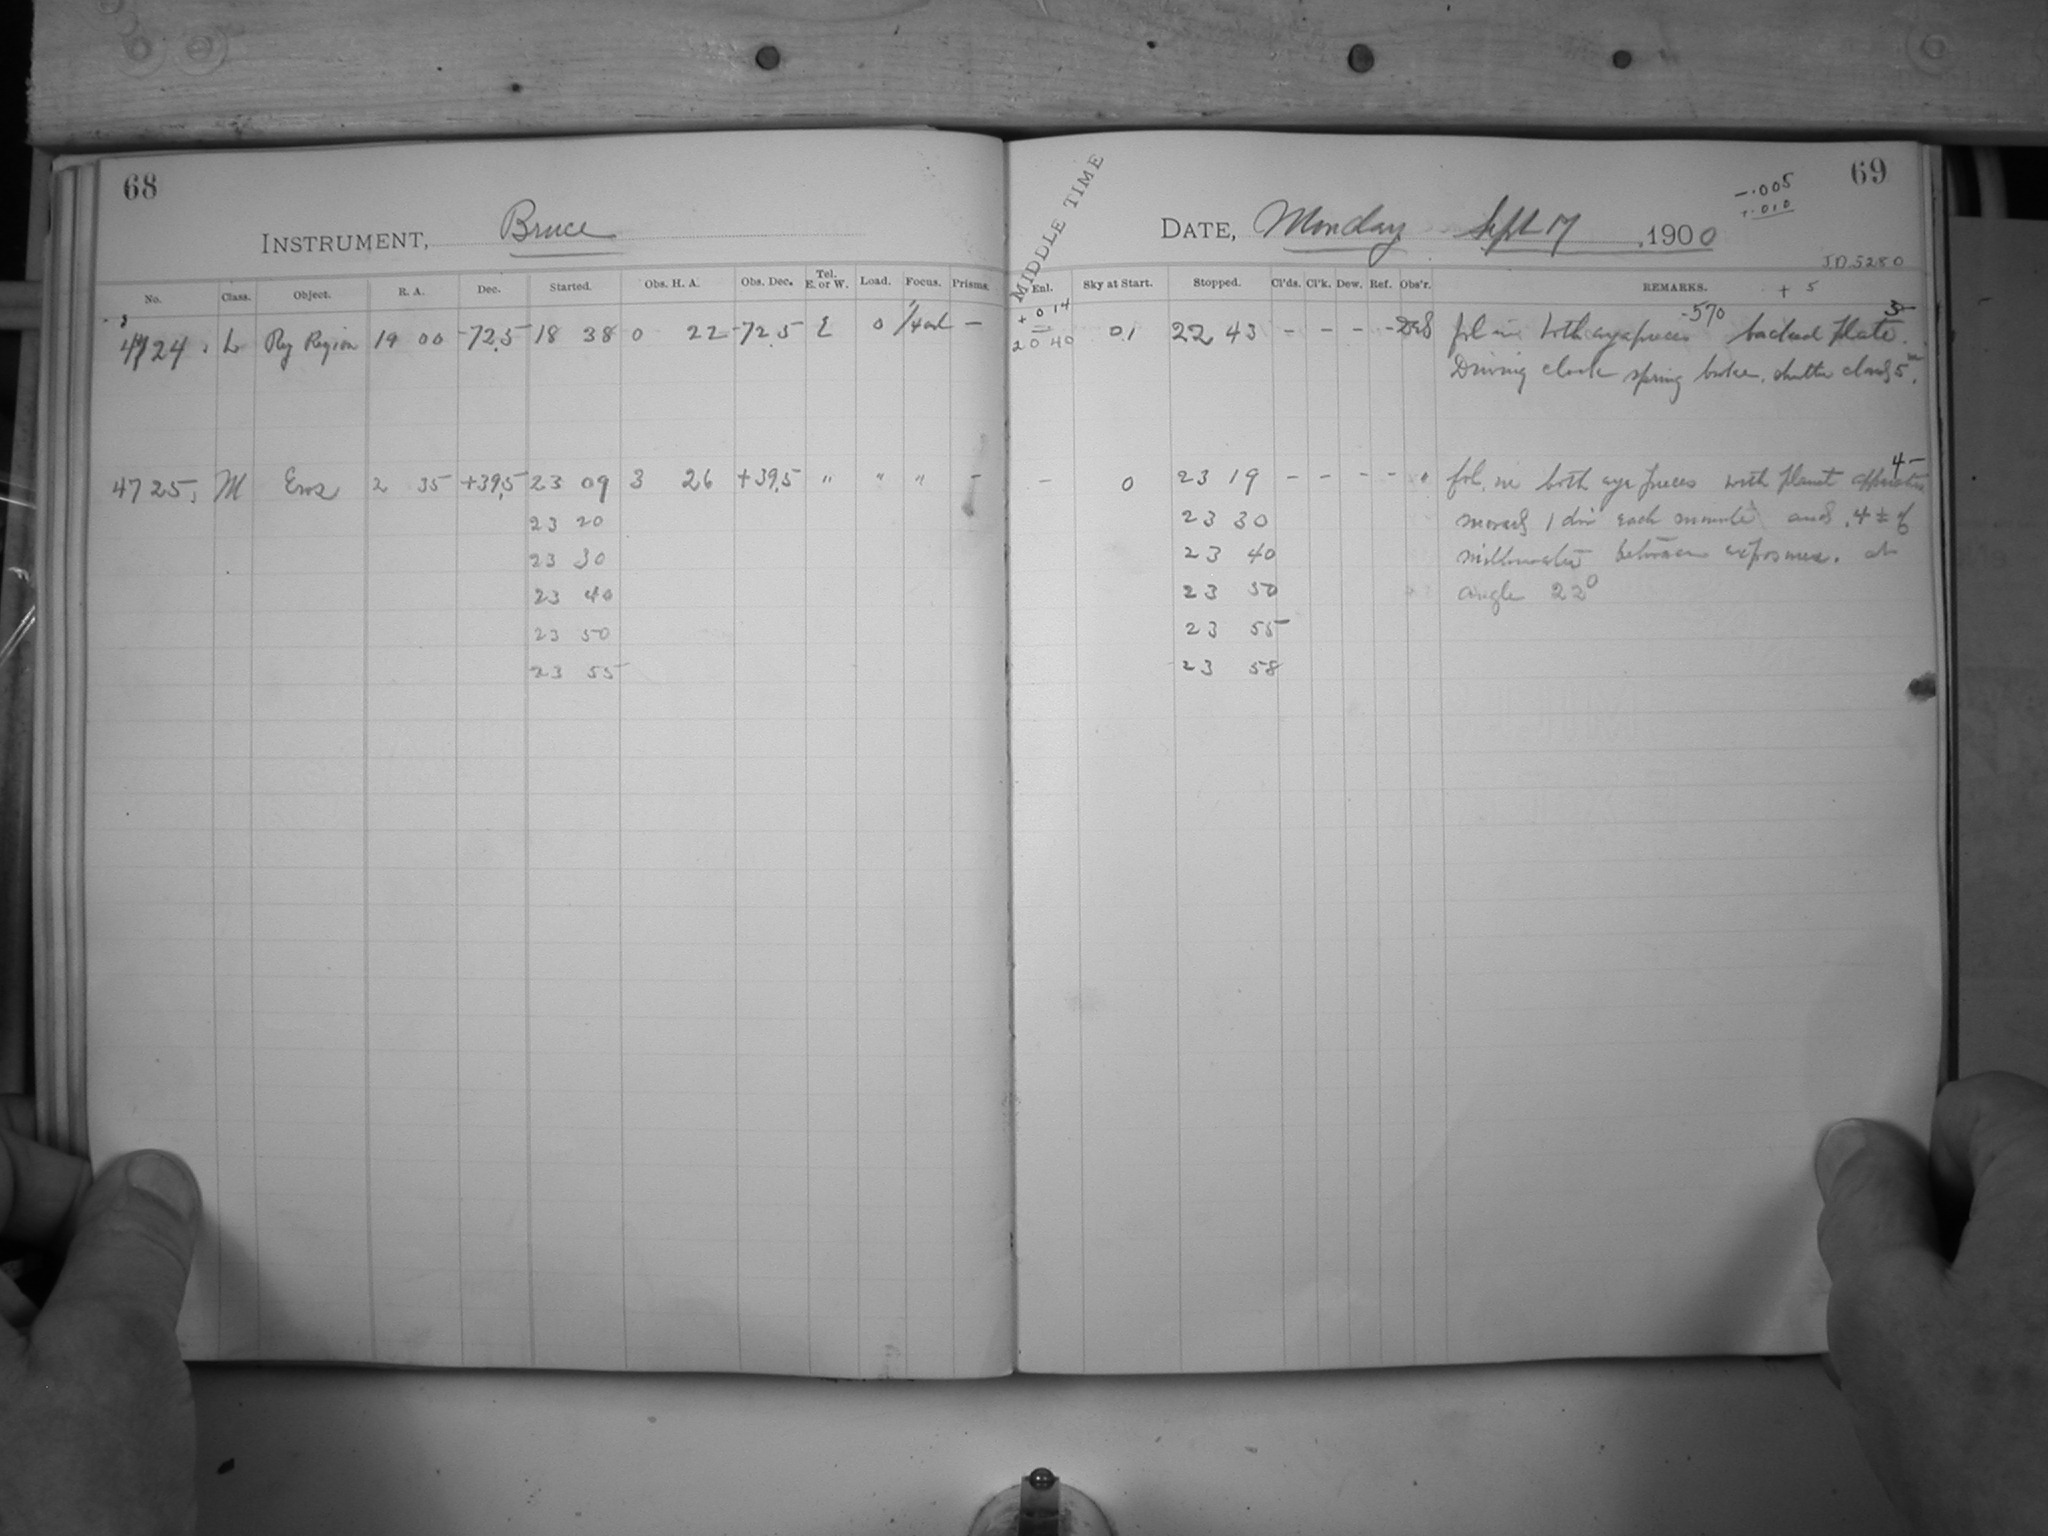 68
INSTRUMENT, Bruce
No. Class. Object. R. A. Dec. Started. Obs. H. A. Obs. Dec. Tel. E. or W. Load. Focus. Prisms.
4724. L Reg Region 19 00 -72.5 18 38 0 22 -72.5 E 0 -
4725. M Eros 2 35 +39.5 23 09 3 26 +39.5 " " " -
23 20
23 30
23 40
23 50
23 55
69
-.005
+.010
MIDDLE TIME
DATE, Monday Sept 17 , 1900
J.D. 5280
Enl. Sky at Start. Stopped. Cl'ds. Cl'k. Dew. Ref. Obs'r. REMARKS. + 5
+ 0 14
20 40
01 22 43 - - - - fol in both eyepieces -570 backed plate. 5-
Driving clock spring broke. shutter closed 5m.
- 0 23 19 - - - - " fol. in both eye pieces with planet apparatus 4-
23 30 moved 1 div each minute and .4 ± of
23 40 millimeter between exposures. at
23 50 angle 22°
23 55
23 58